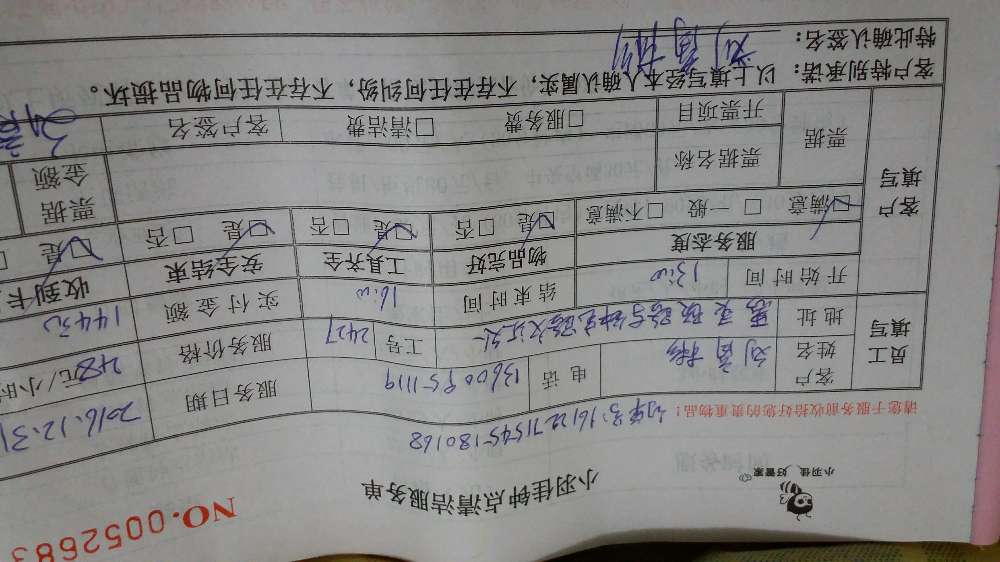 小羽佳 好管家
NO.0052683
小羽佳钟点清洁服务单
请您于服务前收拾好您的贵重物品！
员工填写
客户姓名
电话
服务日期 2016.12.31
地址
工号 2427
服务价格 元/小时
开始时间 13:00
结束时间 16:00
实付金额 144元
客户填写
服务态度
物品完好
工具齐全
安全结束
收到卡
☑满意 □一般 □不满意
☑是 □否
☑是 □否
☑是 □否
☑是
票据
票据名称
票据金额
开票项目
□服务费 □清洁费
客户签名
客户特别承诺：以上填写经本人确认属实，不存在任何纠纷，不存在任何物品损坏。
特此确认签名：